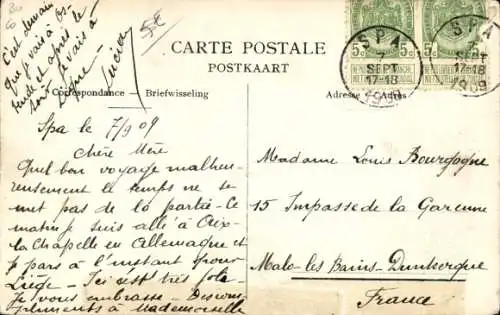 C'est demain
que je vais à Os-
tende et après le
soir je vais à
Lucien
CARTE POSTALE
POSTKAART
Correspondance — Briefwisseling
Adresse — Adres
5c 5c 5c
SPA
7
SEPT
17-18
1909
SPA
SEPT
17-18
1909
Spa le 7/9 09
Chère Mère
Quel bon voyage malheu-
reusement le temps ne se
met pas de la partie. Ce
matin je suis allé à Aix-
la Chapelle en Allemagne et
je pars à l'instant pour
Liège — Ici c'est très joli.
Je vous embrasse — Des com
pliments à Mademoiselle
Madame Louis Bourgogne
15 Impasse de la Garenne
Malo-les Bains-Dunkerque
France